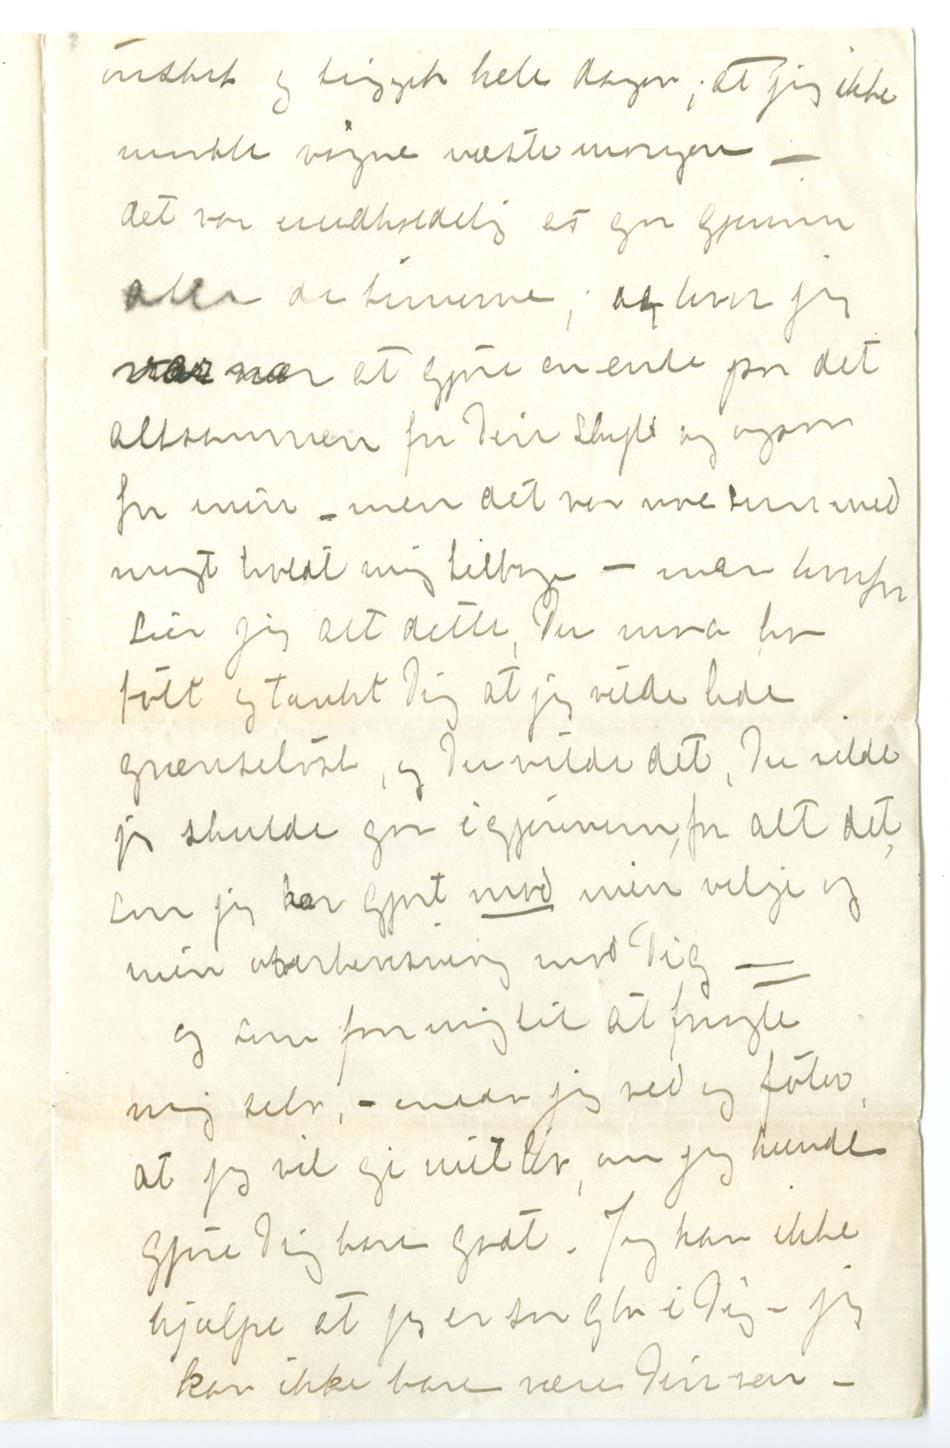 önsket og trygget hele dagen, at jeg ikke
maatte vågne næste morgen —
det var uudholdelig at gå gjennem
alle de timerne, og hvor jeg
var nær at gjöre en ende på det
altsammen for Din skyld og også
for min – men det var noe som med
magt holdt mig tilbage – men hvorfor
sier jeg alt dette, Du må ha
fölt og tænkt Dig at jeg vilde lide
grænselöst, og Du vilde det, Du vilde
jeg skulde gå igjennem, for alt det,
som jeg har gjort mod min vilje og
min overbevisning mod Dig —
og som får mig til at frygte
mig selv, – naar jeg ved og föler,
at jeg vil gi mit liv, om jeg kunde
gjöre Dig bare godt. Jeg kan ikke
hjælpe at jeg er så gla i Dig – jeg
kan ikke bare være Din ven –